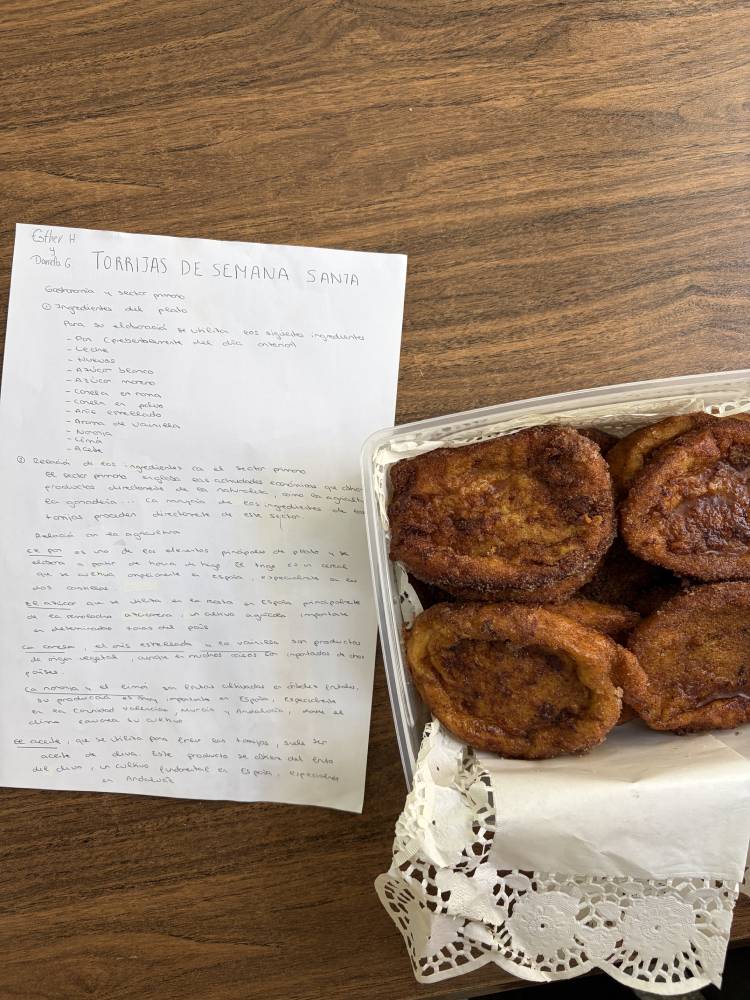 Esther H
y
Daniela G.
TORRIJAS DE SEMANA SANTA
Gastronomía y sector primario
① Ingredientes del plato
Para su elaboración se utiliza los siguientes ingredientes
- Pan (preferiblemente del día anterior)
- Leche
- Huevos
- Azúcar blanco
- Azúcar moreno
- Canela en rama
- Canela en polvo
- Anís estrellado
- Aroma de vainilla
- Naranja
- Lima
- Aceite
② Relación de los ingredientes con el sector primario
El sector primario engloba las actividades económicas que
productos directamente de la naturaleza, como la
la ganadería ... La mayoría de los ingredientes de las
torrijas proceden directamente de este sector.
Relación con la agricultura
El pan es uno de los elementos principales del plato y se
elabora a partir de harina de trigo. El trigo es un cereal
que se cultiva ampliamente en España, especialmente en las
dos Castillas.
El azúcar que se utiliza en la receta en España principalmente
de la remolacha azucarera, un cultivo agrícola importante
en determinadas zonas del país
La canela, el anís estrellado y la vainilla son productos
de origen vegetal, aunque en muchos casos son importados de otros
países.
La naranja y el limón son frutas cultivadas en árboles frutales,
su producción es muy importante en España, especialmente
en la Comunidad Valenciana, Murcia y Andalucía, donde el
clima favorece su cultivo
El aceite, que se utiliza para freír las torrijas, suele ser
aceite de oliva. Este producto se obtiene del fruto
del olivo, un cultivo fundamental en España, especialmente
en Andalucía